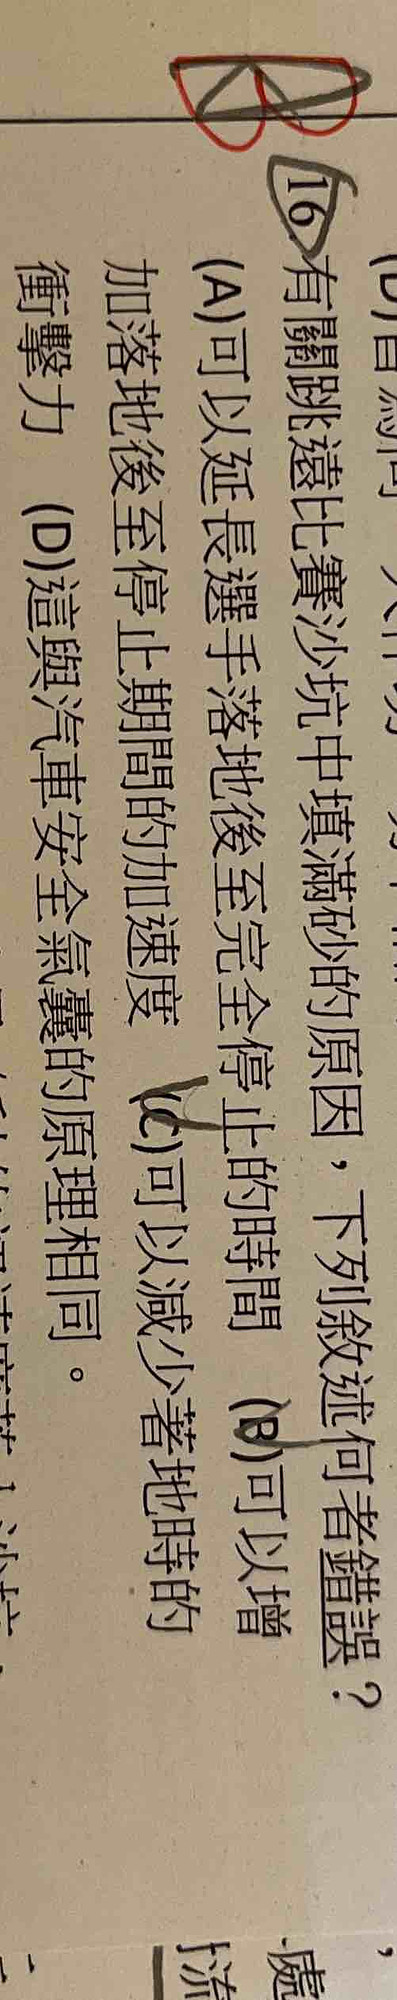 B
16.有關跳遠比賽沙坑中填滿砂的原因，下列敘述何者錯誤？
(A)可以延長選手落地後至完全停止的時間　(B)可以增
加落地後至停止期間的加速度　(C)可以減少著地時的
衝擊力　(D)這與汽車安全氣囊的原理相同。